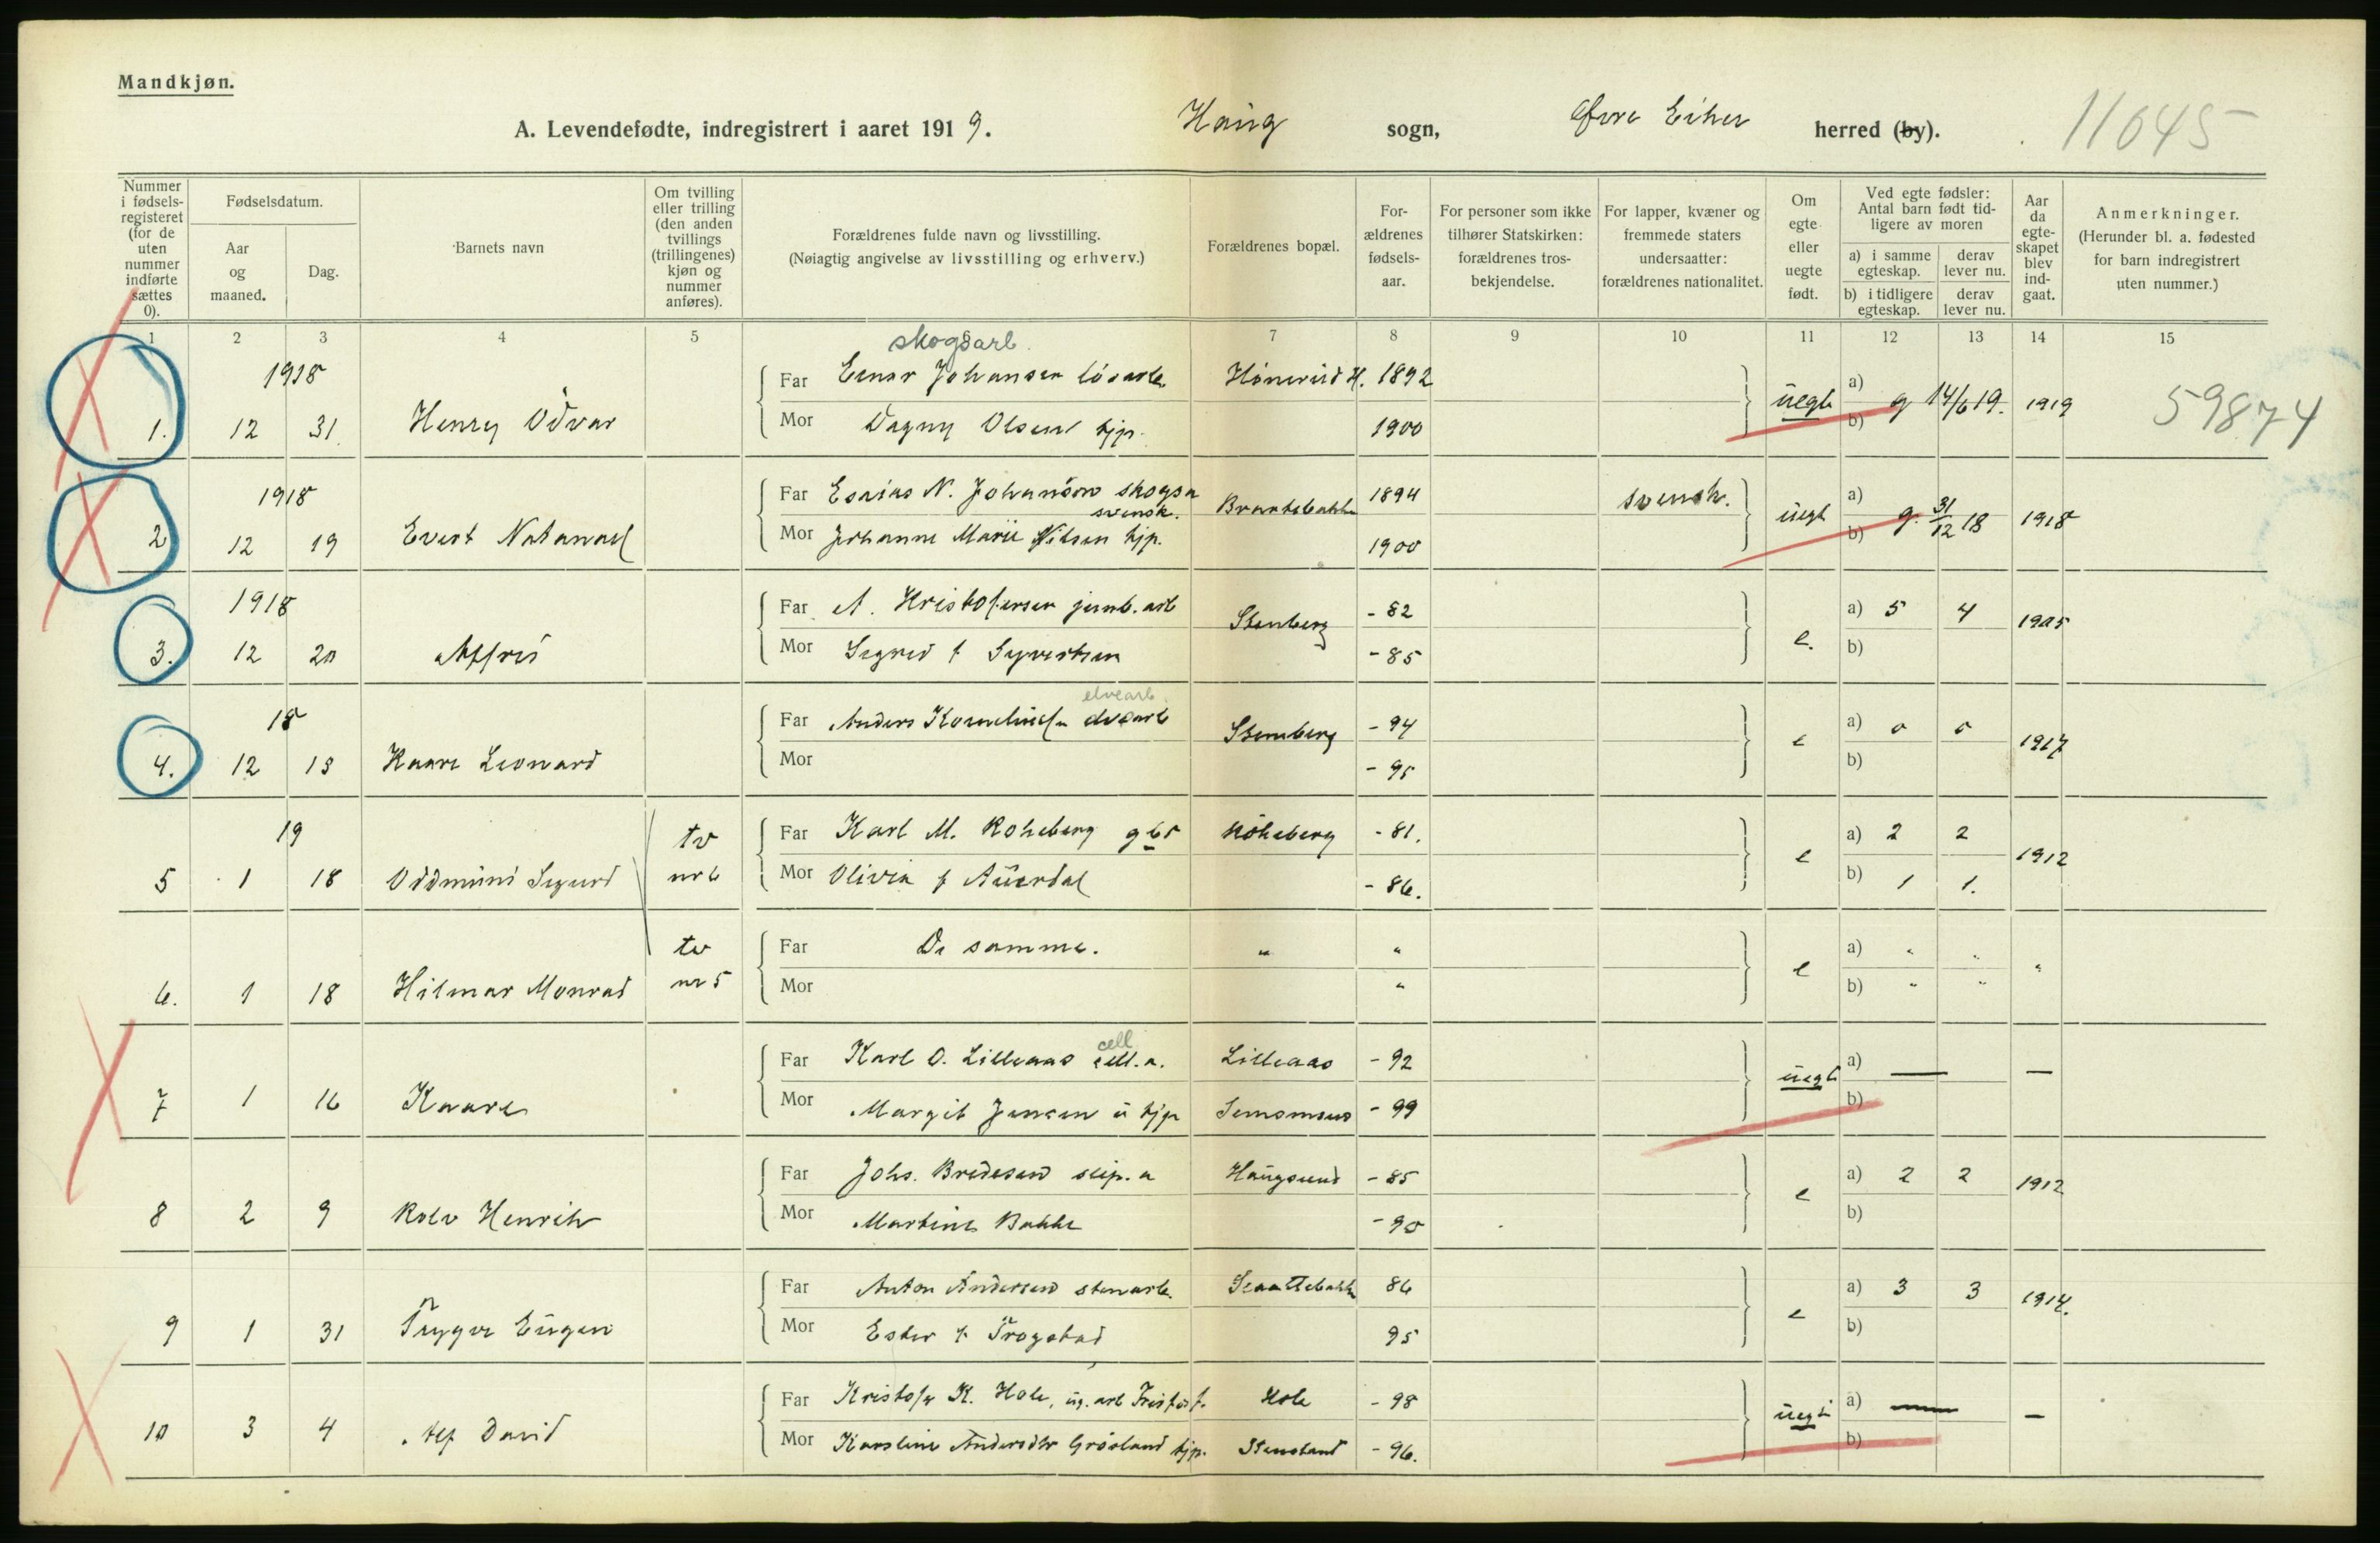 Mandkjøn.
A. Levendefødte, indregistrert i aaret 1919. Haug sogn, Øvre Eiker herred (by). 11645
Nummer i fødselsregisteret (for de uten nummer indførte sættes 0).
Fødselsdatum.
Aar og maaned.
Dag.
Barnets navn
Om tvilling eller trilling (den anden tvillings (trillingenes) kjøn og nummer anføres).
Forældrenes fulde navn og livsstilling.
(Nøiagtig angivelse av livsstilling og erhverv.)
Forældrenes bopæl.
Forældrenes fødselsaar.
For personer som ikke tilhører Statskirken: forældrenes trosbekjendelse.
For lapper, kvæner og fremmede staters undersaatter: forældrenes nationalitet.
Om egte eller uegte født.
Ved egte fødsler: Antal barn født tidligere av moren
a) i samme egteskap. derav lever nu.
b) i tidligere egteskap. derav lever nu.
Aar da egteskapet blev indgaat.
Anmerkninger.
(Herunder bl. a. fødested for barn indregistrert uten nummer.)
1 2 3 4 5 6 7 8 9 10 11 12 13 14 15
skogsarb.
1918 Far Einar Johansen løsarb. Hønerud H. 1892 uegte a) g 14/6 19. 1919 59874
1. 12 31. Henry Odvar Mor Dagny Olsen tjp. 1900 b)
1918 Far Esaias N. Johanson skogsa svensk. Brantebakke 1894 svensk. uegt a) g. 31/12 18 1918
2 12 19 Evert Natanael Mor Johanne Marie Nilsen tjp. 1900 b)
1918 Far A. Kristofersen jernb. arb Stenberg - 82 e. a) 5 4 1905
3. 12 20 Alfred Mor Sigrid f Syvertsen - 85 b)
elvearb.
18 Far Anders Kornelius(n elvearb Stenberg - 94 e a) 0 0 1917
4. 12 13 Kaare Leonard Mor - 95 b)
19 tv Far Karl M. Hokeberg gbr Hokeberg - 81. e a) 2 2 1912
5 1 18 Oddmund Sigurd nr 6 Mor Olivia f Auerdal - 86. b) 1 1.
tv Far De samme. " " e a) " " "
6. 1 18 Hilmar Monrad nr 5 Mor " b) " "
cell
Far Karl O. Lilleaas cell.a. Lilleaas - 92 uegte a) — —
7 1 16 Kaare Mor Margit Jensen u tjp Semsmoen - 99 b)
Far Johs. Bredesen slip. a Haugsund - 85 e a) 2 2 1912
8 2 9 Rolv Henrik Mor Martine Bakke - 90 b)
Far Anton Andersen stenarb. 86 e a) 3 3 1914.
9 1 31 Trygve Eugen Mor Ester f. Trøgstad 95 b)
Far Kristofer K. Hole, ug. arb Hole - 98 uegt a) — —
10 3 4 Alf David Mor Karoline Andersdtr Grøsland tjp. Stensland - 96. b)